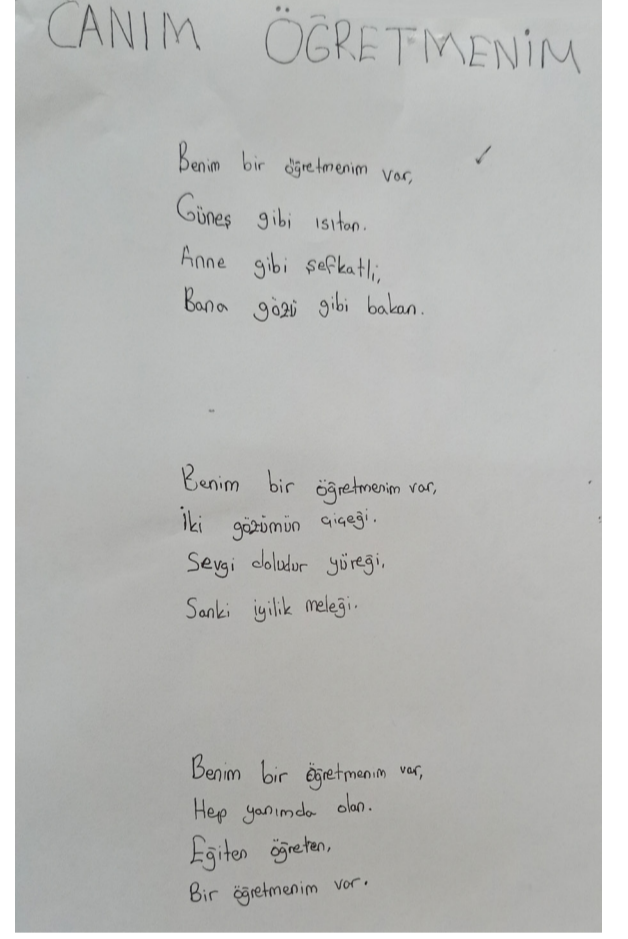 CANIM ÖĞRETMENİM
Benim bir öğretmenim var,
Güneş gibi ısıtan.
Anne gibi şefkatli,
Bana gözü gibi bakan.
Benim bir öğretmenim var,
İki gözümün çiçeği.
Sevgi doludur yüreği,
Sanki iyilik meleği.
Benim bir öğretmenim var,
Hep yanımda olan.
Eğiten öğreten,
Bir öğretmenim var.